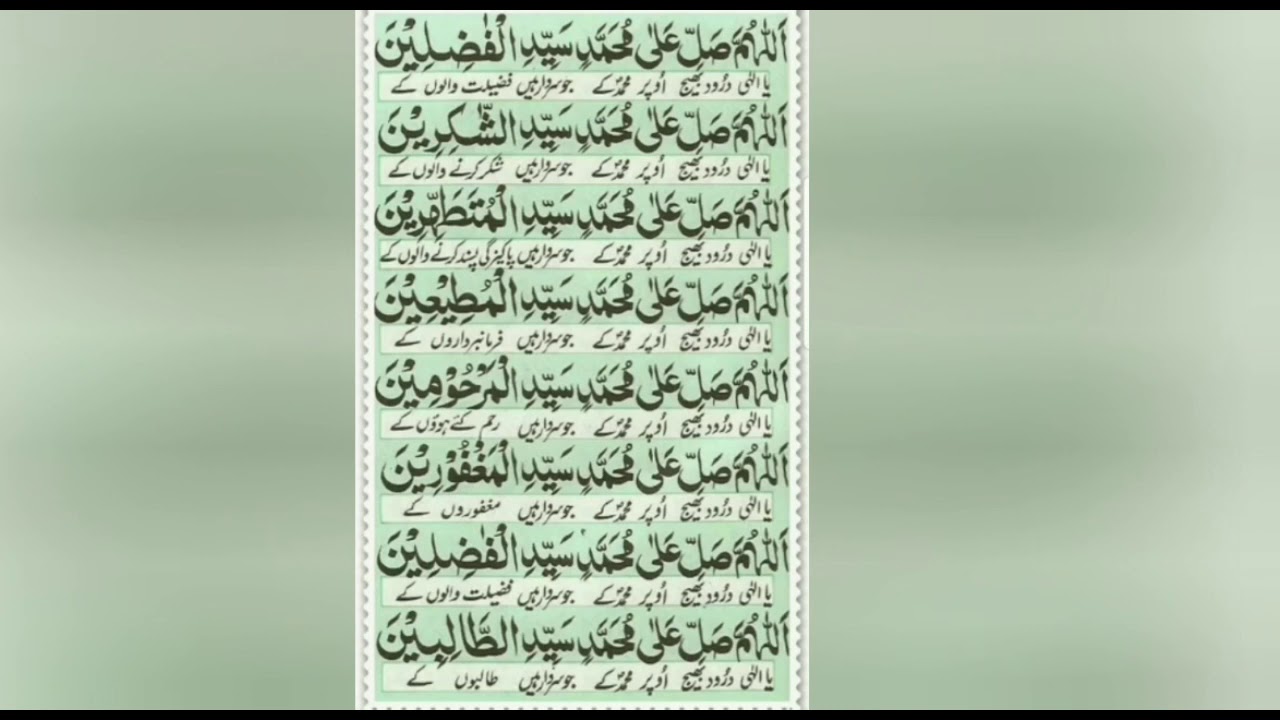 اَللّٰهُمَّ صَلِّ عَلٰى مُحَمَّدٍ سَيِّدِ الْفٰضِلِيْنَ
یا الٰہی درُود بھیج اُوپر محمدؐ کے جو سردار ہیں فضیلت والوں کے
اَللّٰهُمَّ صَلِّ عَلٰى مُحَمَّدٍ سَيِّدِ الشّٰكِرِيْنَ
یا الٰہی درُود بھیج اُوپر محمدؐ کے جو سردار ہیں شکر کرنے والوں کے
اَللّٰهُمَّ صَلِّ عَلٰى مُحَمَّدٍ سَيِّدِ الْمُتَطَهِّرِيْنَ
یا الٰہی درُود بھیج اُوپر محمدؐ کے جو سردار ہیں پاکیزگی پسند کرنے والوں کے
اَللّٰهُمَّ صَلِّ عَلٰى مُحَمَّدٍ سَيِّدِ الْمُطِيْعِيْنَ
یا الٰہی درُود بھیج اُوپر محمدؐ کے جو سردار ہیں فرمانبرداروں کے
اَللّٰهُمَّ صَلِّ عَلٰى مُحَمَّدٍ سَيِّدِ الْمَرْحُوْمِيْنَ
یا الٰہی درُود بھیج اُوپر محمدؐ کے جو سردار ہیں رحم کئے ہوؤں کے
اَللّٰهُمَّ صَلِّ عَلٰى مُحَمَّدٍ سَيِّدِ الْمَغْفُوْرِيْنَ
یا الٰہی درُود بھیج اُوپر محمدؐ کے جو سردار ہیں مغفوروں کے
اَللّٰهُمَّ صَلِّ عَلٰى مُحَمَّدٍ سَيِّدِ الْفٰضِلِيْنَ
یا الٰہی درُود بھیج اُوپر محمدؐ کے جو سردار ہیں فضیلت والوں کے
اَللّٰهُمَّ صَلِّ عَلٰى مُحَمَّدٍ سَيِّدِ الطَّالِبِيْنَ
یا الٰہی درُود بھیج اُوپر محمدؐ کے جو سردار ہیں طالبوں کے